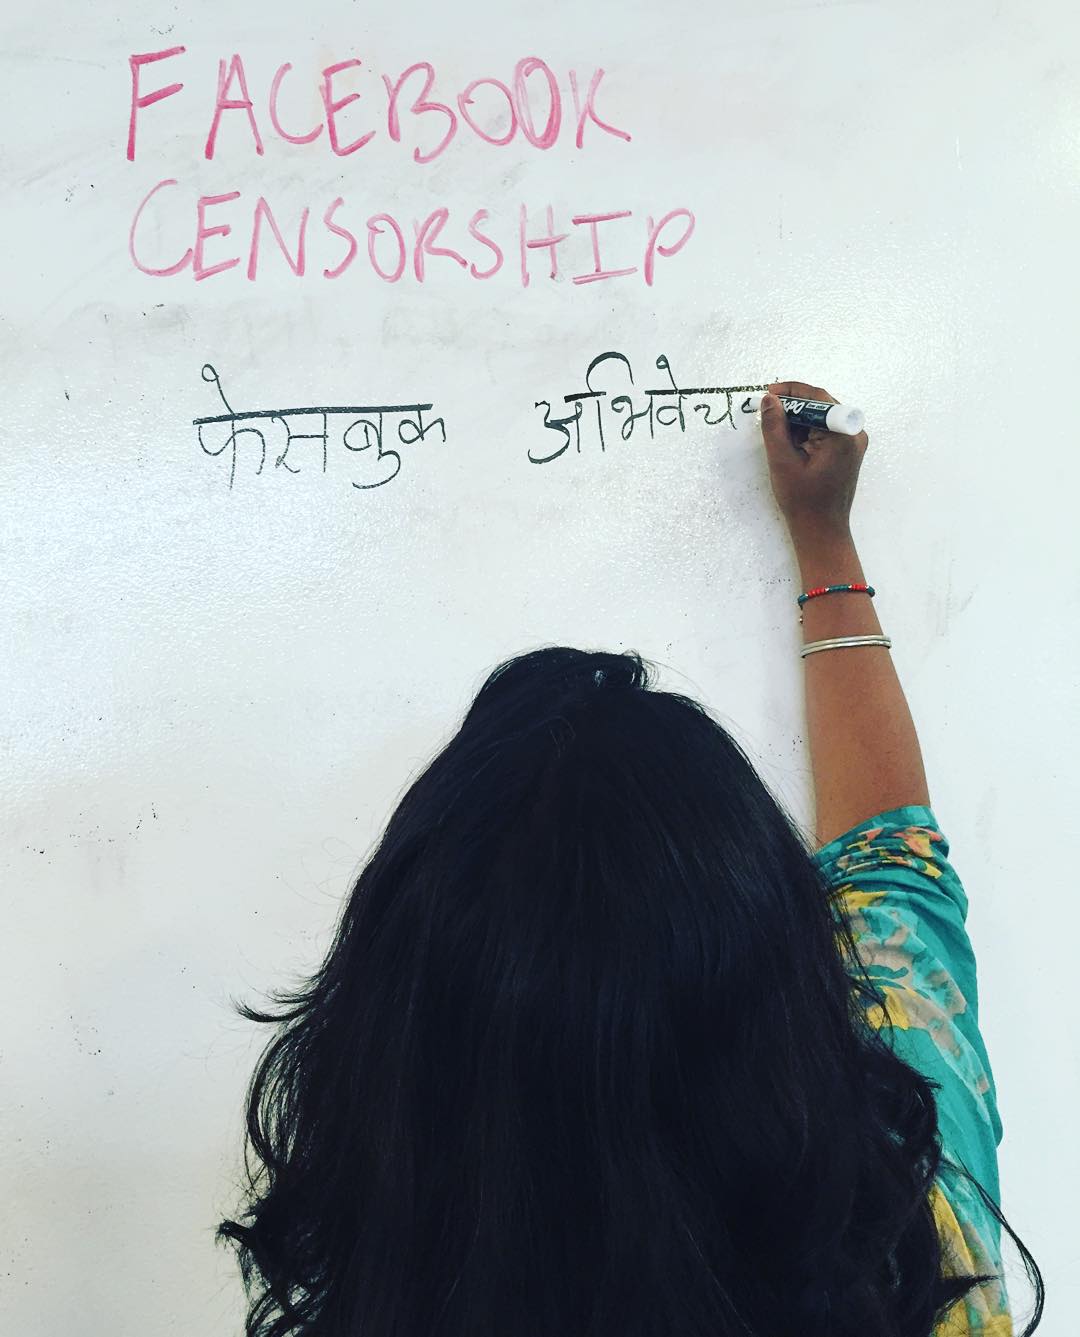 FACEBOOK
CENSORSHIP
फेसबुक अभिवेच